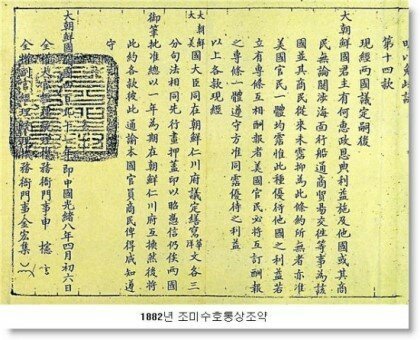 第十四款
現經兩國議定嗣後
大朝鮮國君主有何惠政恩典利益施及他國或其商
民無論關涉海面行船通商貿易交往等事為該
國並其商民從來未霑抑為此條約所無者亦准
美國官民一體均霑惟此種優待他國之利益若
立有專條互相酬報者美國官民必將互訂酬報
之專條一體遵守方准同霑優待之利益
以上各款現經
大朝鮮 大美國大臣同在朝鮮仁川府議定繕寫華洋文各三
分句法相同先行畫押蓋印以昭憑信仍俟兩國
御筆批准總以一年為期在朝鮮仁川府互換然後將
此約各款彼此通諭本國官員商民俾得咸知遵
守
大朝鮮國 年即中國光緒八年四月初六日
全權大官經理 機務衙門事申櫶
全權副官經理 機務衙門事金宏集
1882년 조미수호통상조약